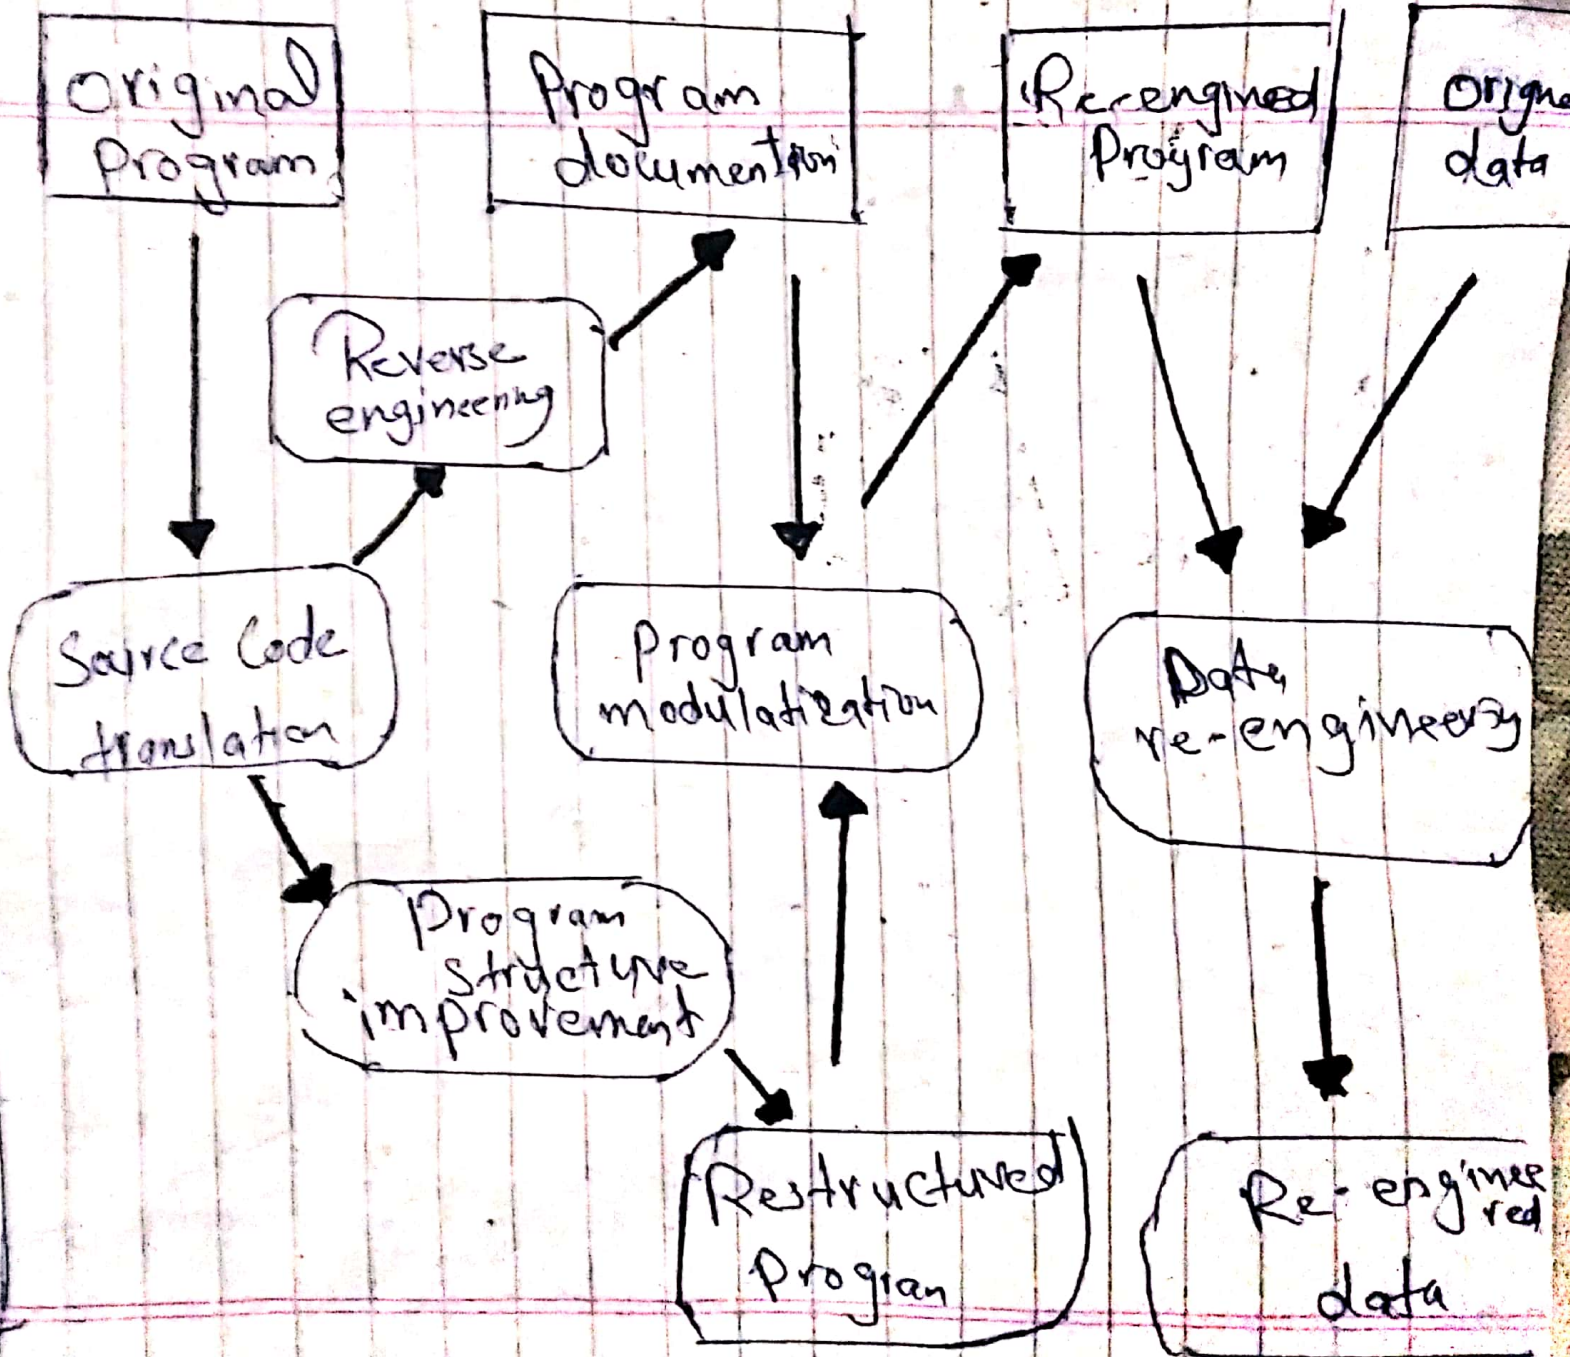 Original
Program
Program
documention
Re-engineed
Program
Origna
data
Reverse
engineering
Source Code
translation
Program
modulatization
Data
re-engineering
Program
structure
improvement
Restructured
Progran
Re-enginee
red
data